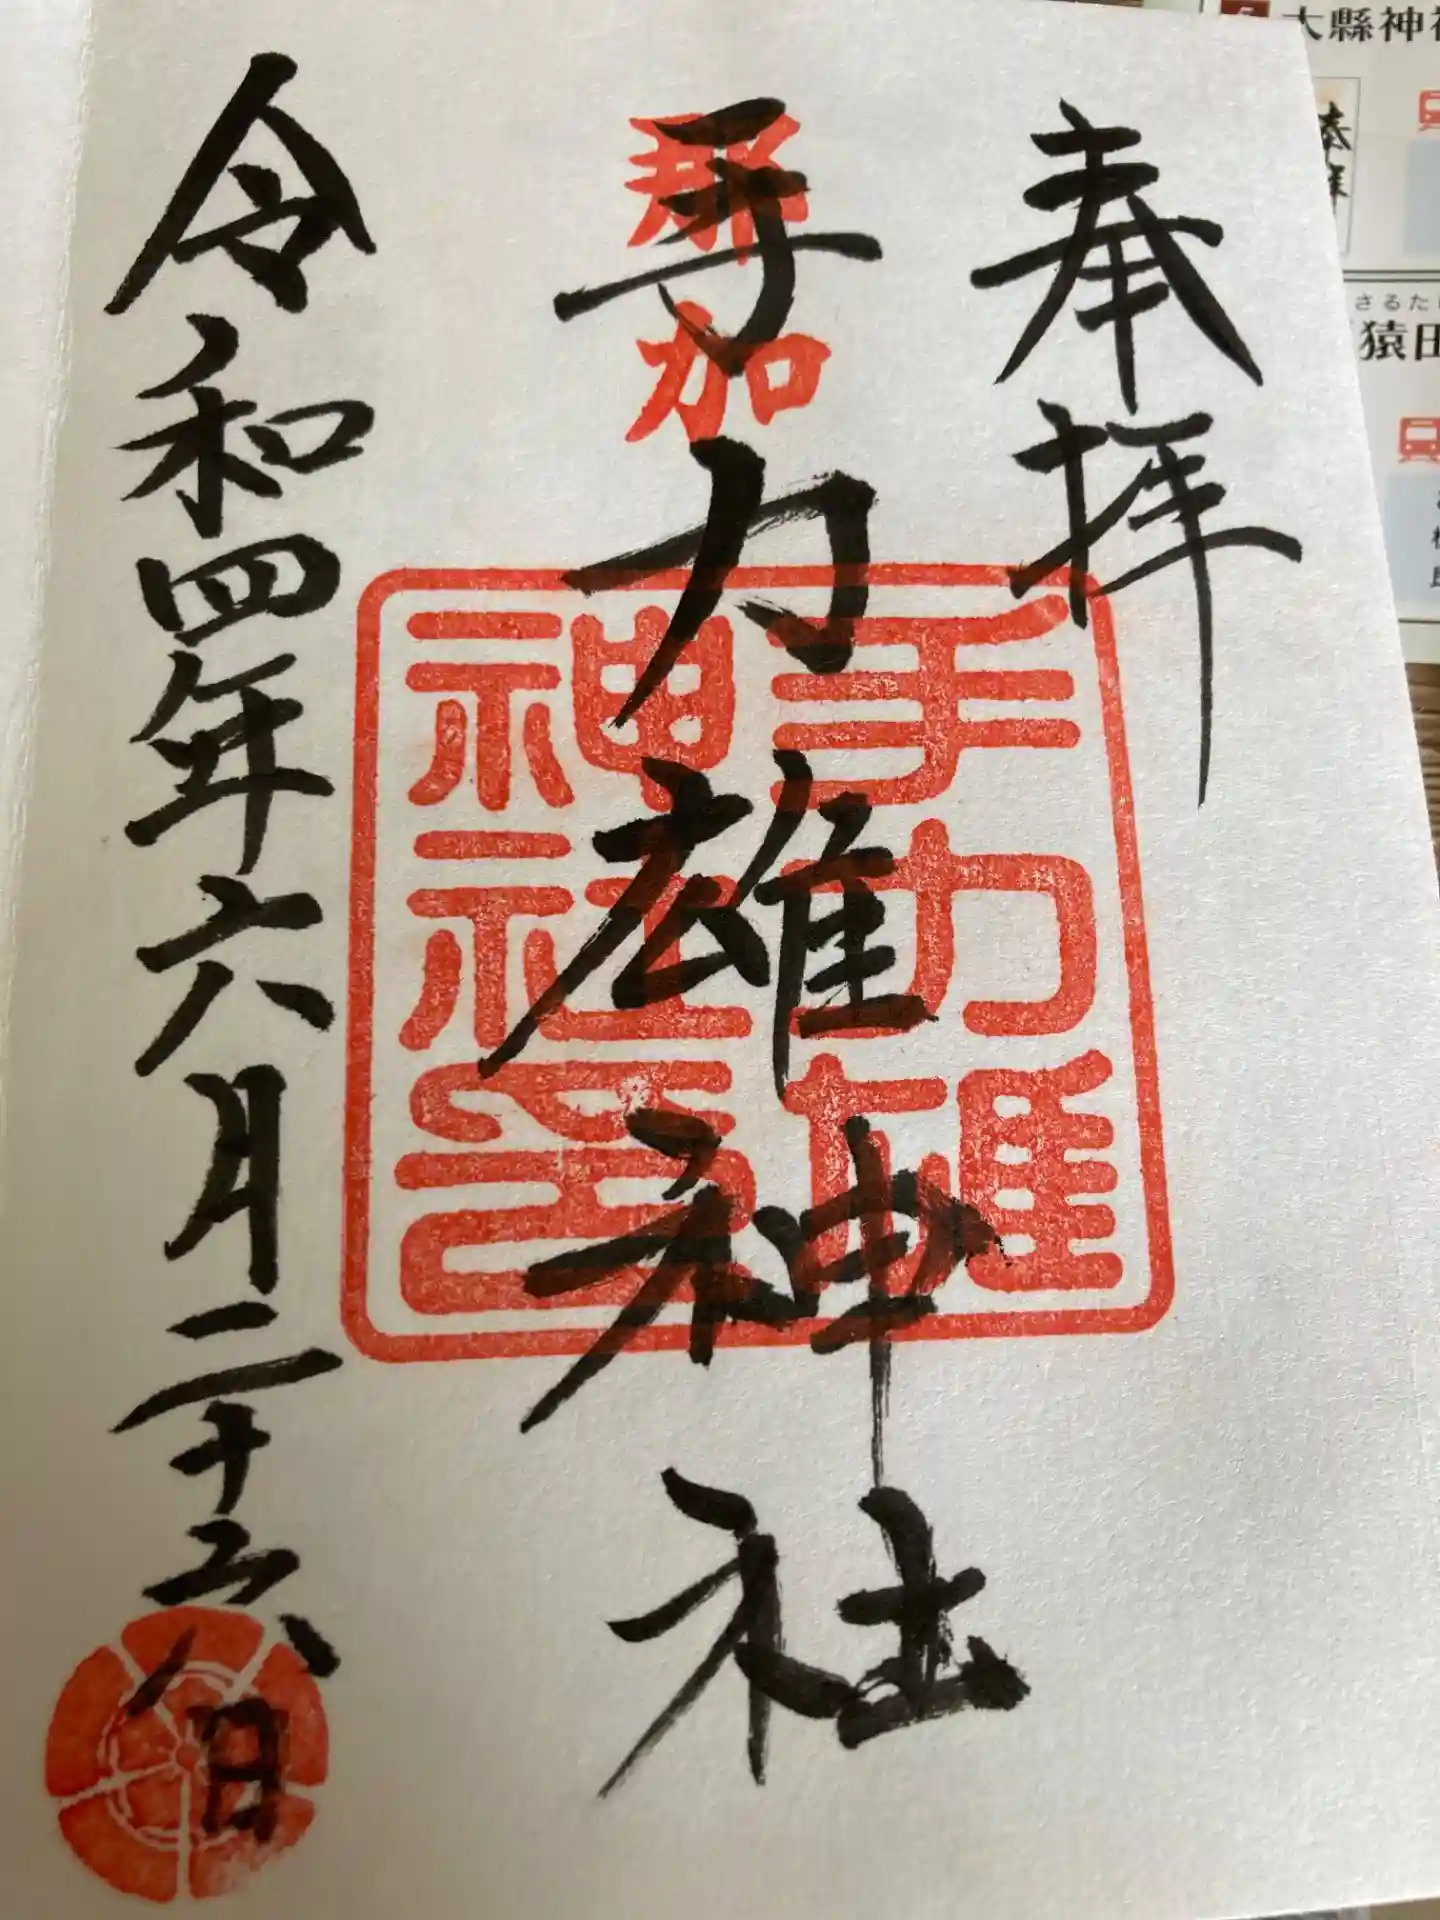 奉拝
那加
手力雄神社
手力雄
神社印
令和四年六月二十六日
大縣神
さるた
猿田